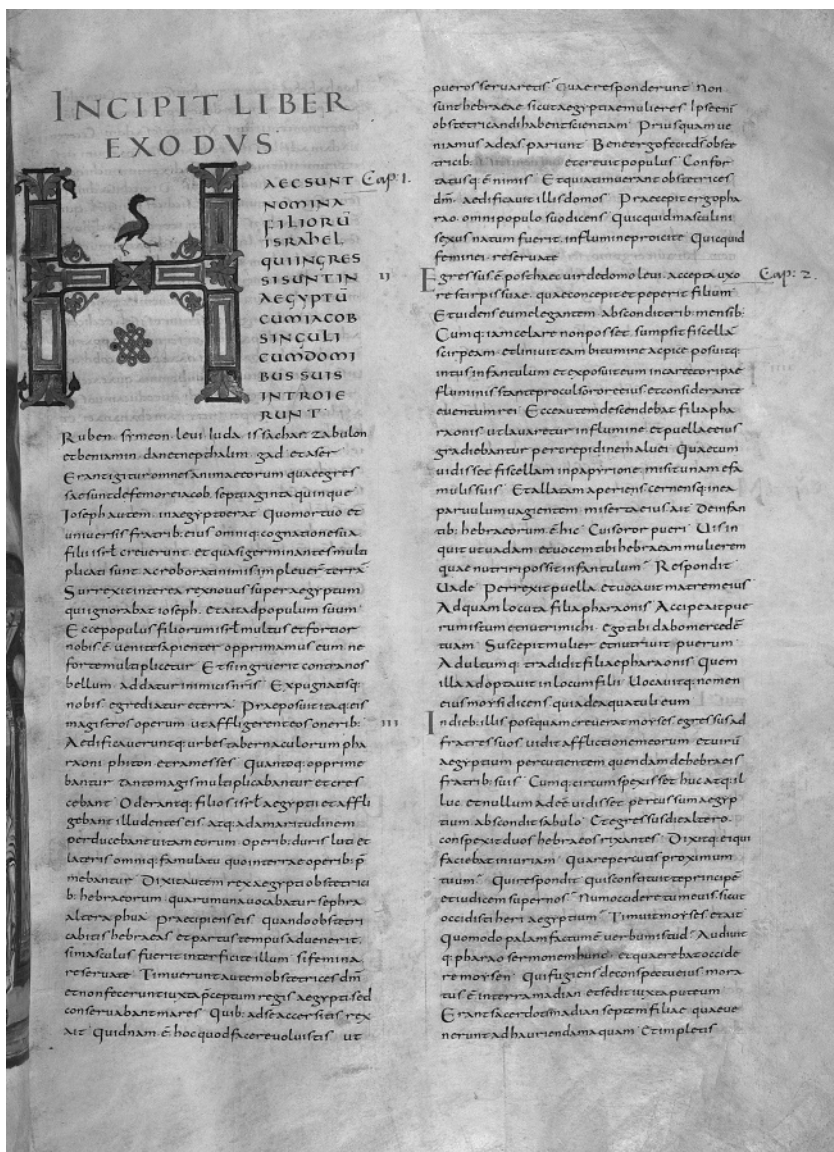 INCIPIT LIBER
EXODVS
HAEC SUNT Cap. 1.
NOMINA
FILIORŪ
ISRAHEL
QUI INGRES
SI SUNT IN
AEGYPTŪ
CUM IACOB
SINGULI
CUM DOMI
BUS SUIS
INTROIE
RUNT
Ruben. symeon. levi. iuda. issachar. zabulon
et beniamin. dan et nepthalim. gad. et aser
Erant igitur omnes animae eorum quae egres
sae sunt de femore iacob. septuaginta quinque
Ioseph autem. in aegypto erat Quo mortuo et
universis fratrib: eius omniq: cognatione sua
filii isrł creverunt. et quasi germinantes multi
plicati sunt. ac roborati nimis impleveř terrā
Surrexit interea rex novus super aegyptum
qui ignorabat ioseph. et ait ad populum suum
Ecce populus filiorum isrł multus et fortior
nobis ē. venite sapienter opprimamus eum ne
forte multiplicetur Et si ingruerit contra nos
bellum. addatur inimicis nr̄is Expugnatisq:
nobis egrediatur e terra Praeposuit itaq: eis
magistros operum ut affligerent eos onerib:
Aedificaveruntq: urbes tabernaculorum pha
raoni phiton et ramesses Quantoq: opprime
bantur tanto magis multiplicabantur et cres
cebant Oderantq: filios isrł aegyptii et affli
gebant illudentes eis atq: ad amaritudinem
perducebant vitam eorum operib: duris luti et
lateris omniq: famulatu quo in terrae operib: p̄
mebantur Dixit autem rex aegypti obstetrici
b: hebraeorum. quarum una vocabatur sephra
altera phua Praecipiens eis Quando obstetri
cabitis hebraeas et partus tempus advenerit.
si masculus fuerit interficite illum. si femina
reservate Timuerunt autem obstetrices dm̄
et non fecerunt iuxta p̄ceptum regis aegypti sed
conservabant mares Quib: ad se accersitis rex
ait Quidnam ē hoc quod facere voluistis ut
pueros servaretis Quae responderunt Non
sunt hebraeae sicut aegyptiae mulieres Ipse enī
obstetricandi habent scientiam Priusquam ve
niamus ad eas pariunt Bene ergo fecit dš obste
tricib: et crevit populus Confor
tatusq: ē nimis Et quia timuerant obstetrices
dm̄. aedificavit illis domos Praecepit ergo pha
rao. omni populo suo dicens Quicquid masculini
sexus natum fuerit. in flumine proicite Quicquid
feminei. reservate
II Egressus ē post haec vir de domo levi. accepta uxo Cap: 2.
re stirpis suae. quae concepit et peperit filium
Et videns eum elegantem. abscondit trib: mensib:
Cumq: iam celare non posset. sumpsit fiscellā
scirpeam. et linivit eam bitumine ac pice posuitq:
intus infantulum et exposuit eum in carecto ripae
fluminis stante procul sorore eius et considerante
eventum rei Ecce autem descendebat filia pha
raonis ut lavaretur in flumine. et puellae eius
gradiebantur per trepidinem alvei Quae cum
vidisset fiscellam in papyrione. misit unam e fa
mulis suis Et allatam aperiens cernensq: in ea
parvulum vagientem miserta eius ait De infan
tib: hebraeorum ē hic Cui soror pueri Vis in
quit ut vadam. et vocem tibi hebraeam mulierem
quae nutrire possit infantulum Respondit
Vade Perrexit puella et vocavit matrem eius
Ad quam locuta filia pharaonis Accipe ait pue
rum istum et nutri michi. ego tibi dabo mercedē
tuam Suscepit mulier et nutrivit puerum
Adultumq: tradidit filiae pharaonis Quem
illa adoptavit in locum filii Vocavitq: nomen
eius moysi dicens quia de aqua tuli eum
III In dieb: illis postquam creverat moyses egressus ad
fratres suos vidit afflictionem eorum et virū
aegyptium percutientem quendam de hebraeis
fratrib: suis Cumq: circumspexisset huc atq: il
luc. et nullum adeē vidisset percussum aegyp
tium. abscondit sabulo Et egressus die altero.
conspexit duos hebraeos rixantes Dixitq: ei qui
faciebat iniuriam Quare percutis proximum
tuum Qui respondit Quis constituit te principē
et iudicem super nos Num occidere tu me vis. sicut
occidisti heri aegyptium Timuit moyses et ait
Quomodo palam factum ē verbum istud Audivit
q: pharao sermonem hunc. et quaerebat occide
re moysen Qui fugiens de conspectu eius mora
tus ē in terra madian et sedit iuxta puteum
Erant sacerdoti madian septem filiae. quae ve
nerunt ad hauriendam aquam Et impletis